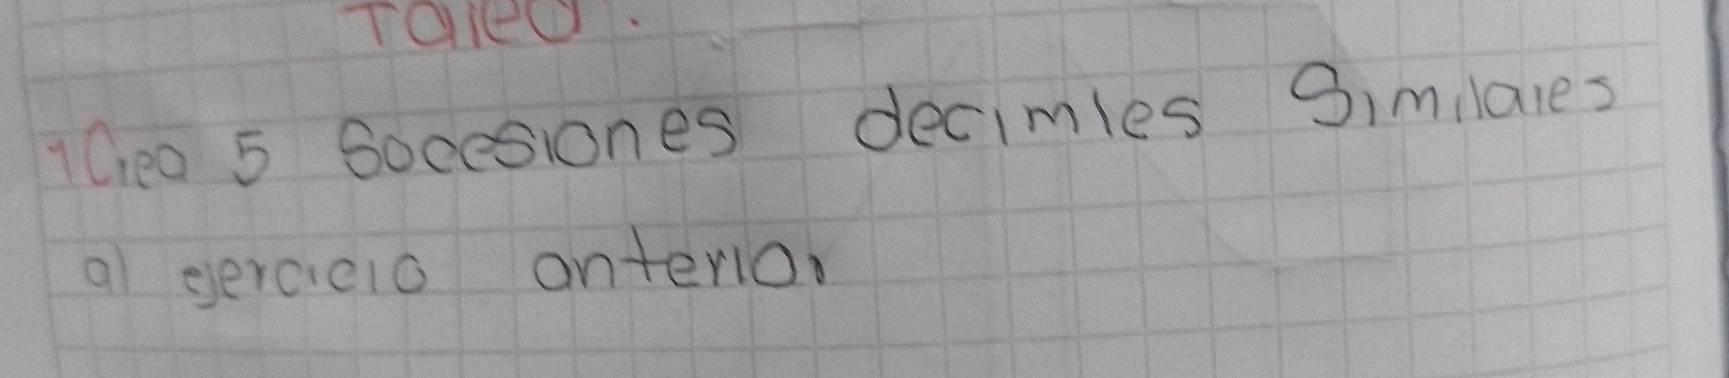 Tarea.
1 Crea 5 Socesiones decimles Similares
al ejercicio anterior